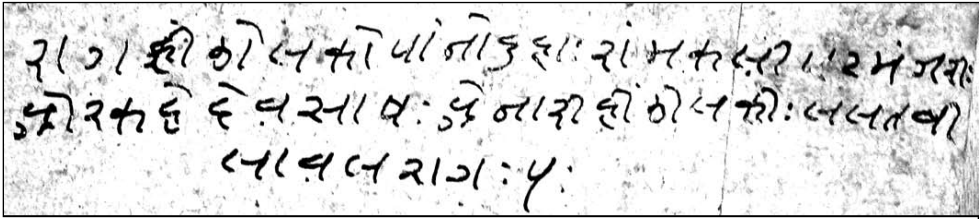 राग हीडोलको पांनो दुहा: रांमकली ।। रमंजरी:
ओर कहे देवसाष: ऐ नारी हींडोलकी: ललत बी
लावल राग: ५: